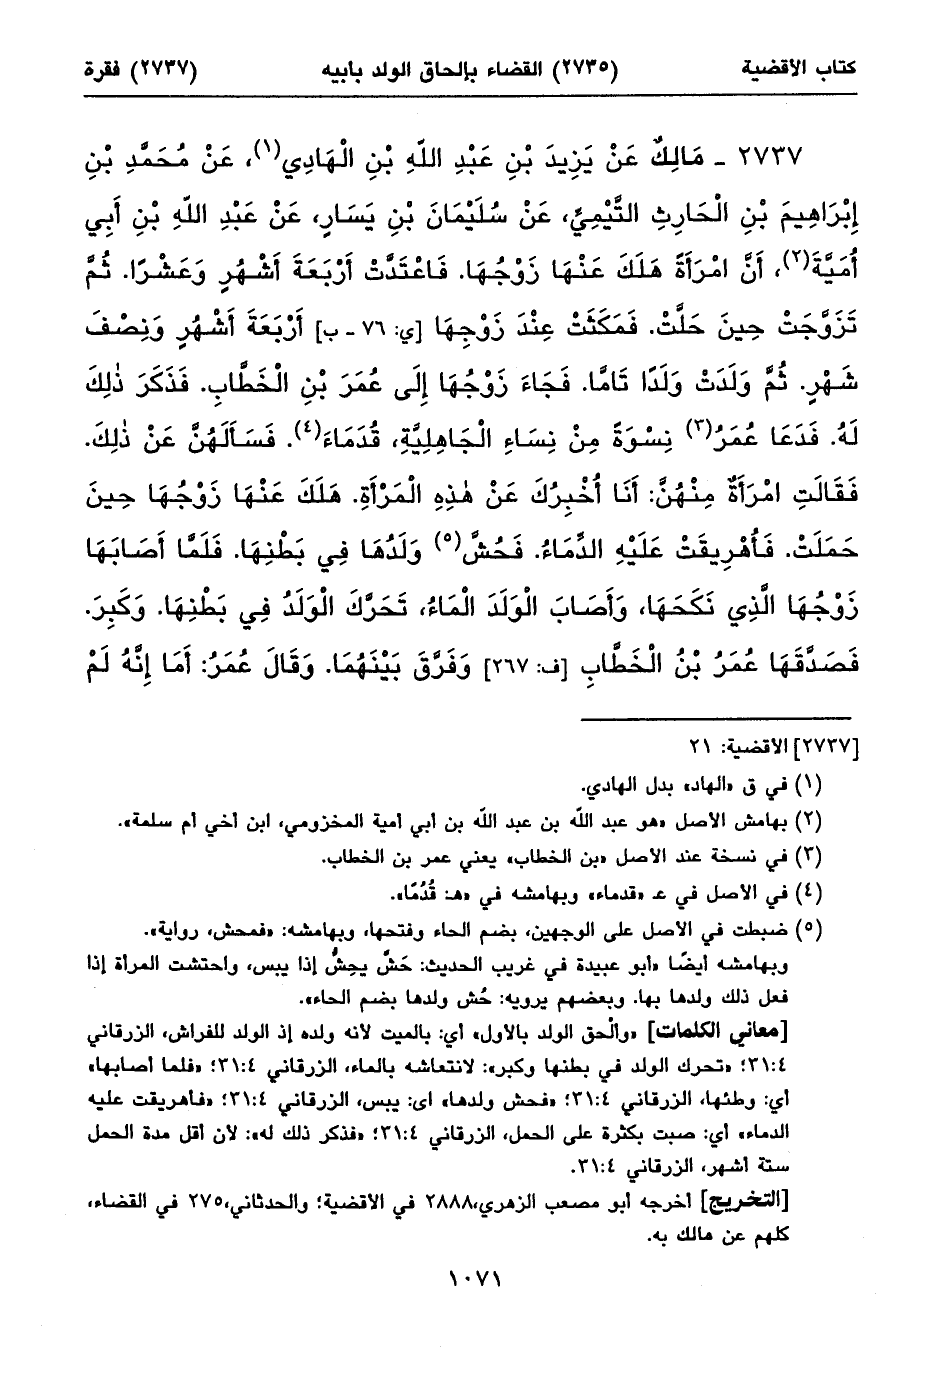 كتاب الأقضية (٢٧٣٥) القضاء بإلحاق الولد بأبيه (٢٧٣٧) فقرة
٢٧٣٧ - مَالِكٌ عَنْ يَزِيدَ بْنِ عَبْدِ اللّٰهِ بْنِ الْهَادِي(١)، عَنْ مُحَمَّدِ بْنِ
إِبْرَاهِيمَ بْنِ الْحَارِثِ التَّيْمِيِّ، عَنْ سُلَيْمَانَ بْنِ يَسَارٍ، عَنْ عَبْدِ اللّٰهِ بْنِ أَبِي
أُمَيَّةَ(٢)، أَنَّ امْرَأَةً هَلَكَ عَنْهَا زَوْجُهَا. فَاعْتَدَّتْ أَرْبَعَةَ أَشْهُرٍ وَعَشْرًا. ثُمَّ
تَزَوَّجَتْ حِينَ حَلَّتْ. فَمَكَثَتْ عِنْدَ زَوْجِهَا [ي: ٧٦ - ب] أَرْبَعَةَ أَشْهُرٍ وَنِصْفَ
شَهْرٍ. ثُمَّ وَلَدَتْ وَلَدًا تَامًّا. فَجَاءَ زَوْجُهَا إِلَى عُمَرَ بْنِ الْخَطَّابِ. فَذَكَرَ ذٰلِكَ
لَهُ. فَدَعَا عُمَرُ(٣) نِسْوَةً مِنْ نِسَاءِ الْجَاهِلِيَّةِ، قُدَمَاءَ(٤). فَسَأَلَهُنَّ عَنْ ذٰلِكَ.
فَقَالَتِ امْرَأَةٌ مِنْهُنَّ: أَنَا أُخْبِرُكَ عَنْ هٰذِهِ الْمَرْأَةِ. هَلَكَ عَنْهَا زَوْجُهَا حِينَ
حَمَلَتْ. فَأُهْرِيقَتْ عَلَيْهِ الدِّمَاءُ. فَحُشَّ(٥) وَلَدُهَا فِي بَطْنِهَا. فَلَمَّا أَصَابَهَا
زَوْجُهَا الَّذِي نَكَحَهَا، وَأَصَابَ الْوَلَدَ الْمَاءُ، تَحَرَّكَ الْوَلَدُ فِي بَطْنِهَا. وَكَبِرَ.
فَصَدَّقَهَا عُمَرُ بْنُ الْخَطَّابِ [ف: ٢٦٧] وَفَرَّقَ بَيْنَهُمَا. وَقَالَ عُمَرُ: أَمَا إِنَّهُ لَمْ
[٢٧٣٧] الأقضية: ٢١
(١) في ق «الهاد» بدل الهادي.
(٢) بهامش الأصل «هو عبد الله بن عبد الله بن أبي أمية المخزومي، ابن أخي أم سلمة».
(٣) في نسخة عند الأصل «بن الخطاب» يعني عمر بن الخطاب.
(٤) في الأصل في عـ «قدماء» وبهامشه في «هـ: قُدُمًا».
(٥) ضبطت في الأصل على الوجهين، بضم الحاء وفتحها، وبهامشه: «فمحش، رواية».
وبهامشه أيضًا «أبو عبيدة في غريب الحديث: حَشَّ يحِشُّ إذا يبس، واحتشت المرأة إذا
فعل ذلك ولدها بها. وبعضهم يرويه: حُش ولدها بضم الحاء».
[معاني الكلمات] «وألحق الولد بالأول» أي: بالميت لأنه ولده إذ الولد للفراش، الزرقاني
٣١:٤؛ «تحرك الولد في بطنها وكبر»: لانتعاشه بالماء، الزرقاني ٣١:٤؛ «فلما أصابها»
أي: وطئها، الزرقاني ٣١:٤؛ «فحش ولدها» اى: يبس، الزرقاني ٣١:٤؛ «فأهريقت عليه
الدماء» أي: صبت بكثرة على الحمل، الزرقاني ٣١:٤؛ «فذكر ذلك له»: لأن أقل مدة الحمل
ستة أشهر، الزرقاني ٣١:٤.
[التخريج] أخرجه أبو مصعب الزهري،٢٨٨٨ في الأقضية؛ والحدثاني،٢٧٥ في القضاء،
كلهم عن مالك به.
١٠٧١